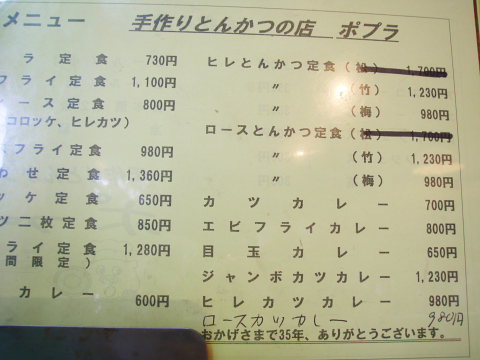 メニュー 手作りとんかつの店 ポプラ
ラ定食 730円
フライ定食 1,100円
ース定食 800円
コロッケ、ヒレカツ)
フライ定食 980円
わせ定食 1,360円
ッケ定食 650円
ツ二枚定食 850円
ライ定食 1,280円
間限定)
カレー 600円
ヒレとんかつ定食(松) 1,700円
〃 (竹) 1,230円
〃 (梅) 980円
ロースとんかつ定食(松) 1,700円
〃 (竹) 1,230円
〃 (梅) 980円
カツカレー 700円
エビフライカレー 800円
目玉カレー 650円
ジャンボカツカレー 1,230円
ヒレカツカレー 980円
ロースカツカレー 980円
おかげさまで35年、ありがとうございます。